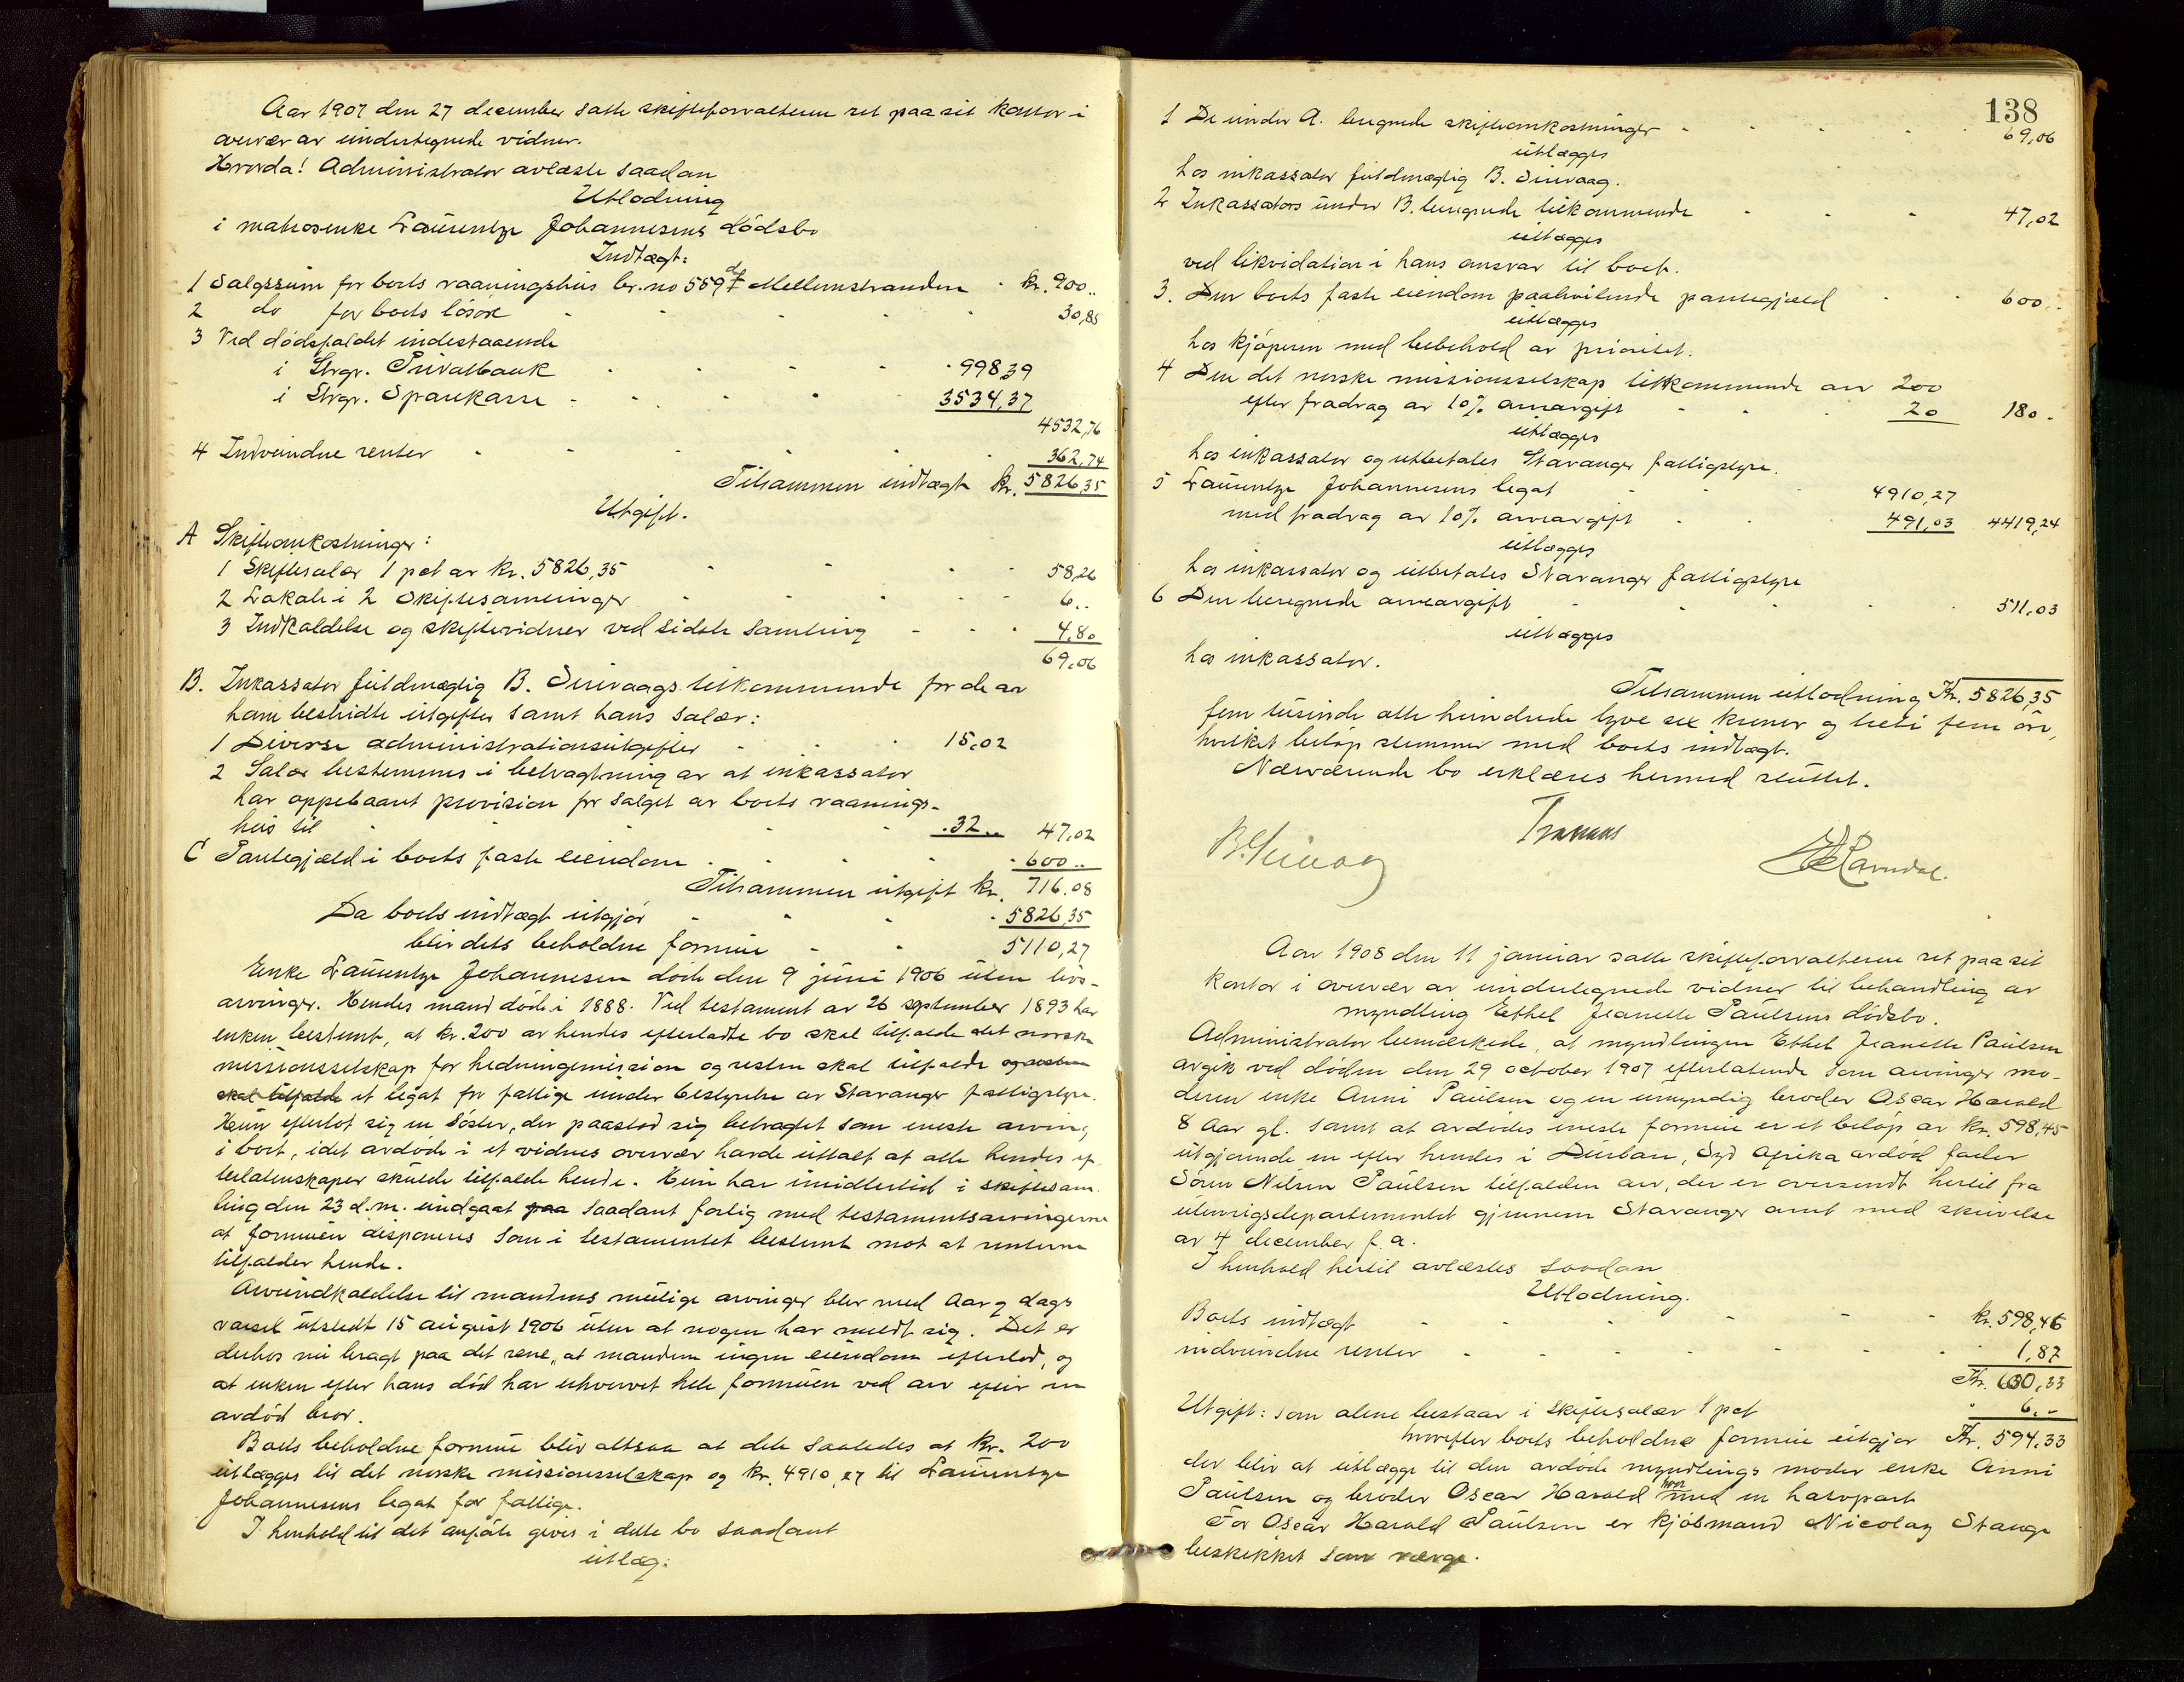 Aar 1907 den 27 december satte skifteforvalteren ret paa sit kontor i
overvær av undertegnede vidner.
Hvorda! Administrator avlæste saadan
Utlodning
i matrosenke Laurentze Johannesens dödsbo
Indtægt:
1 Salgssum for boets vaaningshus br. no 559 d Mellemstranden kr. 900..
2 do for boets lösöre 30,85
3 Ved dödsfaldet indestaaende
i Stvgr. Privatbank 998,39
i Stvgr. Sparekasse 3534,37
4532,76
4 Indvundne renter 362,74
Tilsammen indtægt kr. 5826,35
Utgift.
A Skifteomkostninger:
1 Skiftesalær 1 pct av kr. 5826,35 58,26
2 Lokale i 2 Skiftesamlinger 6..
3 Indkaldelse og skiftevidner ved sidste samling 4,80
69,06
B. Inkassator fuldmægtig B. Sunvaags tilkommende for de av
ham bestridte utgifter samt hans salær:
1 Diverse administrationsutgifter 15,02
2 Salær bestemmes i betragtning av at inkassator
har oppebaaret provision for salget av boets vaanings-
hus til 32.. 47,02
C Pantegjæld i boets faste eiendom 600..
Tilsammen utgift kr. 716,08
Da boets indtægt utgjör 5826,35
blir dets beholdne formue 5110,27
Enke Laurentze Johannesen döde den 9 juni 1906 uten livs-
arvinger. Hendes mand döde i 1888. Ved testament av 26 september 1893 har
enken bestemt, at kr. 200 av hendes efterladte bo skal tilfalde det norske
missionsselskap for hedningemission og resten skal tilfalde og resten
skal tilfalde et legat for fattige under bestyrelse av Stavanger fattigstyre.
Hun efterlot sig en söster, der paastod sig betragtet som eneste arving
i boet, idet avdöde i et vidnes overvær havde uttalt at alle hendes ef-
terlatenskaper skulde tilfalde hende. Hun har imidlertid i skiftesam-
ling den 23 d.m. indgaat paa saadant forlig med testamentsarvingerne
at formuen disponeres som i testamentet bestemt mot at renterne
tilfalder hende.
Arveindkaldelse til mandens mulige arvinger blev med aar og dags
varsel utstedt 15 august 1906 uten at nogen har meldt sig. Det er
derhos nu bragt paa det rene, at manden ingen eiendom efterlod, og
at enken efter hans död har erhvervet hele formuen ved arv efter en
avdöd bror.
Boets beholdne formue blir altsaa at dele saaledes at kr. 200
utlægges til det norske missionsselskap og kr. 4910,27 til Laurentze
Johannesens legat for fattige.
I henhold til det anförte gives i dette bo saadant
utlæg:
138
1 De under A. beregnede skifteomkostninger 69,06
utlægges
hos inkassator fuldmægtig B. Sunvaag.
2 Inkassators under B. beregnede tilkommende 47,02
utlægges
ved likvidation i hans ansvar til boet.
3. Den boets faste eiendom paahvilende pantegjæld 600..
utlægges
hos kjöperen med bibehold av prioritet.
4 Den det norske missionsselskap tilkommende arv 200
efter fradrag av 10% arveavgift 20 180.
utlægges
hos inkassator og utbetales Stavanger fattigstyre.
5 Laurentze Johannesens legat 4910,27
med fradrag av 10% arveavgift 491,03 4419,24
utlægges
hos inkassator og utbetales Stavanger fattigstyre
6 Den beregnede arveavgift 511,03
utlægges
hos inkassator.
Tilsammen utlodning Kr. 5826,35
fem tusinde otte hundrede tyve sex kroner og treti fem öre,
hvilket belöp stemmer med boets indtægt.
Nærværende bo erklæres hermed sluttet.
Aar 1908 den 11 januar satte skifteforvalteren ret paa sit
kontor i overvær av undertegnede vidner til behandling av
myndling Ethel Jeanette Paulsens dödsbo.
Administrator bemærkede, at myndlingen Ethel Jeanette Paulsen
avgik ved döden den 29 october 1907 efterlatende som arvinger mo-
deren enke Anni Paulsen og en umyndig broder Oscar Harald
8 aar gl. samt at avdödes eneste formue er et belöp av kr. 598,45
utgjörende en efter hendes i Durban, Syd Afrika avdöd fader
Sören Nilsen Paulsen tilfalden arv, der er oversendt hertil fra
utenrigsdepartementet gjennem Stavanger amt med skrivelse
av 4 december f.a.
I henhold hertil avlæstes saadan
Utlodning.
Boets indtægt kr. 598,46
indvundne renter 1,87
Kr. 600,33
Utgift: som alene bestaar i skiftesalær 1 pct 6..
hvorefter boets beholdne formue utgjör Kr. 594,33
der blir at utlægge til den avdöde myndlings moder enke Anni
Paulsen og broder Oscar Harald hver med en halvpart
For Oscar Harald Paulsen er kjöbmand Nicolay Stange
beskikket som værge.